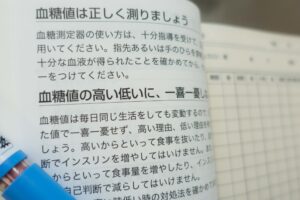 血糖値は正しく測りましょう
血糖測定器の使い方は、十分指導を受けて
用いてください。指先あるいは手のひらを
十分な血液が得られたことを確かめてから、
ーをつけてください。
血糖値の高い低いに、一喜一憂し
血糖値は毎日同じ生活をしても変動するので
た値で一喜一憂せず、高い理由、低い理由
しょう。高いからといって食事を抜いたり、
断でインスリンを増やしてはいけません。
からといって食事量を増やしたり、イン
自己判断で減らしてはいけません。
時の対処法を確かめて